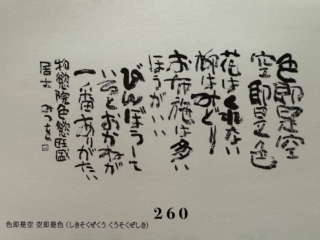 色即是空
空即是色
花はくれない
柳はみどり
お布施は多い
ほうがいい
びんぼうして
いるとおかねが
一番ありがたい
物慾院色慾旺盛
居士 みつを
260
色即是空 空即是色（しきそくぜくう くうそくぜしき）